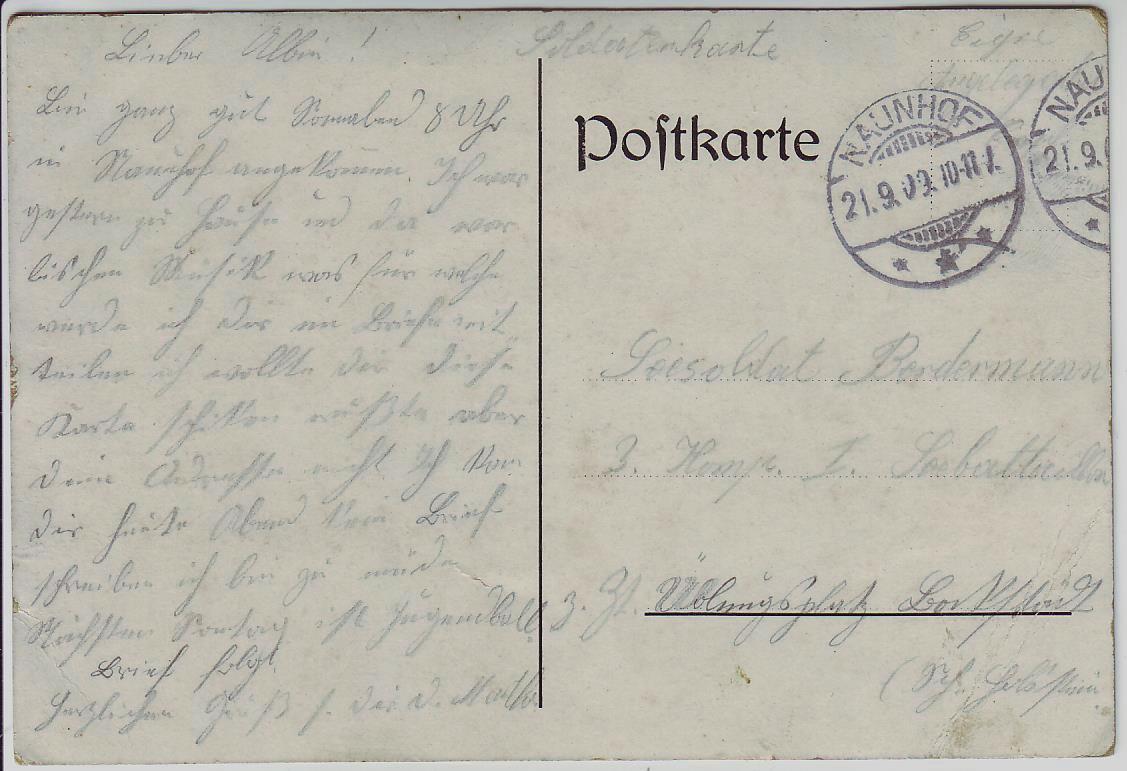 Lieber Albin!
Bin ganz gut Sonnabend 8 Uhr
in Naunhof angekommen. Ich war
gestern zu Hause und da war
bischen Musik was für welche
werde ich dir im Briefe mit
teilen ich wollte dir diese
Karte schiken wußte aber
dein Adresse nicht Ich kan
dir heute Abend kein Brief
schreiben ich bin zu müde
Nächsten Sontag ist Jugendball
Brief folgt
Herzlichen Gruß s. dir d. Martha
Soldatenkarte
Eigne
Angelegen
Postkarte
NAUNHOF
21.9.09. 10-11 V.
NAU
21.9.0
Seesoldat Bordermann
3. Komp. I. Seebattaillon
z. Zt. Übungsplatz Lockstedt
(Sch. Holstein